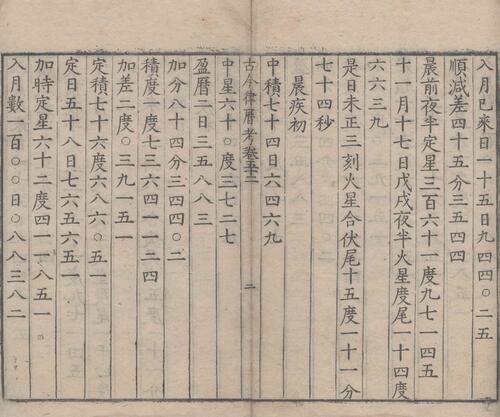 入月已來日一十五日九四四〇二五
順減差四十五分三五四四
晨前夜半定星三百六十一度九七一四五
十一月十七日戊戌夜半火星度尾一十四度
六六三九
是日未正三刻火星合伏尾十五度一十一分
七十四秒
晨疾初
中積七十四日六四六九
古今律曆考卷五十二
二
中星六十〇度三七二七
盈曆二日三五八八三
加分八十四分三四四〇二
積度一度七三六四一一三四
加差二度〇三九一五一
定積七十六度六八六〇五一
定日五十八日七六五六五一
加時定星六十二度四一一八五一
入月數一百〇〇日〇八八三八二